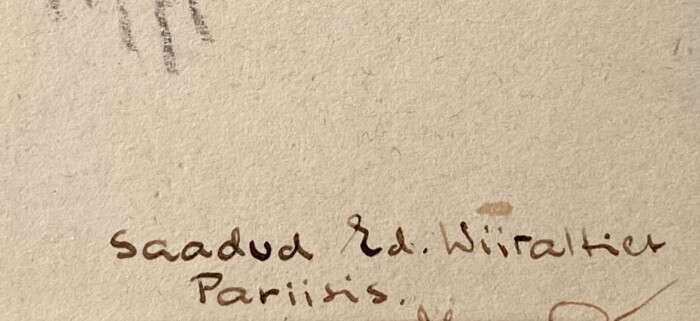 Saadud Ed. Wiiraltilt
Pariisis.